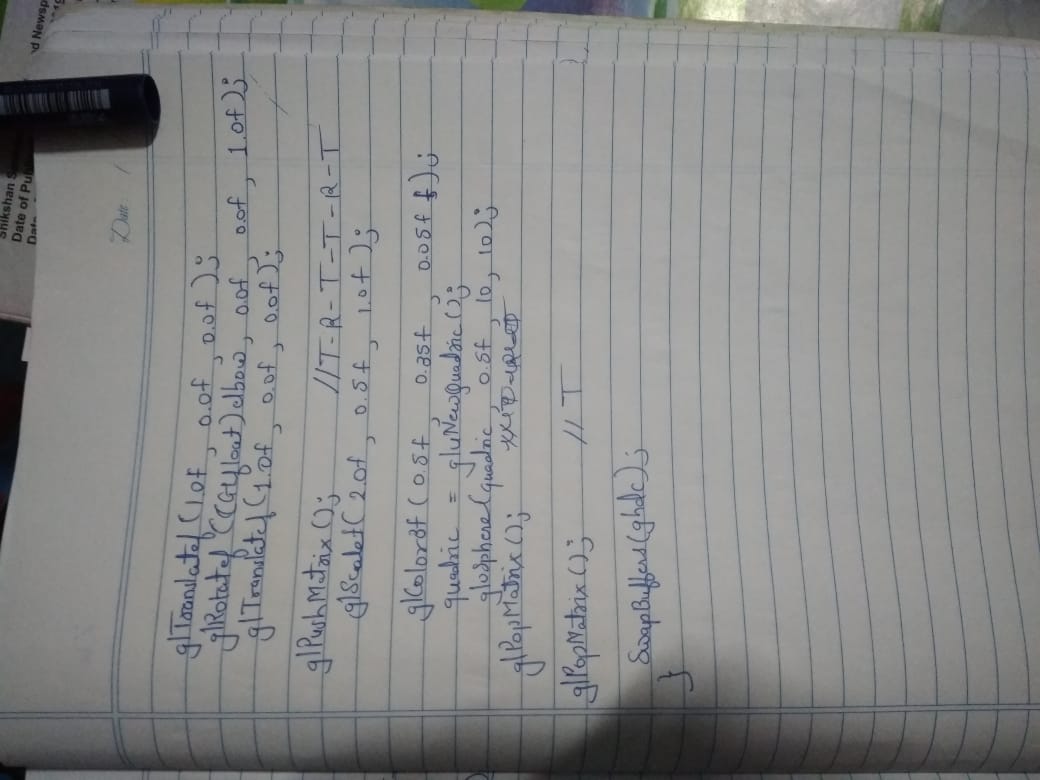 Shikshan S
Date of Pu
Date
d Newsp
Date /
glTranslatef (1.0f , 0.0f , 0.0f );
glRotatef ((GLfloat) elbow, 0.0f , 0.0f , 1.0f );
glTranslatef (1.0f , 0.0f , 0.0f );
glPushMatrix (); //T-R-T-T-R-T
glScalef( 2.0f , 0.5f , 1.0f );
glColor3f ( 0.5f , 0.35f , 0.05f );
quadric = gluNewQuadric ();
gluSphere(quadric , 0.5f , 10, 10);
glPopMatrix ();
glPopMatrix (); // T
SwapBuffers(ghdc);
}